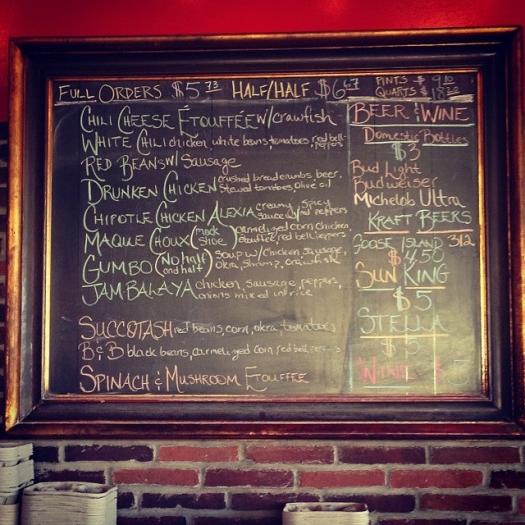 FULL ORDERS $5.73 HALF/HALF $6.67 PINTS $ 9.10
QUARTS $
CHILI CHEESE ÉTOUFFÉE W/crawfish
WHITE CHILI chicken, white beans, tomatoes, red bell-peppers
RED BEANS W/ Sausage
DRUNKEN CHICKEN crushed bread crumbs, beer,
stewed tomatoes, olive oil
CHIPOTLE CHICKEN ALEXIA creamy spicy
sauce w/ red peppers
MAQUE CHOUX (mock shoe) carmelized corn, chicken,
red bell peppers
GUMBO (NO half and half) soup w/ chicken, sausage,
okra, shrimp, crawfish
JAMBALAYA chicken, sausage, peppers,
onions mixed in rice
SUCCOTASH red beans, corn, okra, tomatoes
B & B black beans, carmelized corn, red bell peppers
SPINACH & MUSHROOM ETOUFFÉE
BEER & WINE
Domestic Bottles
$3
Bud Light
Budweiser
Michelob Ultra
KRAFT BEERS
GOOSE ISLAND 312
$4.50
SUN KING
$5
STELLA
$5